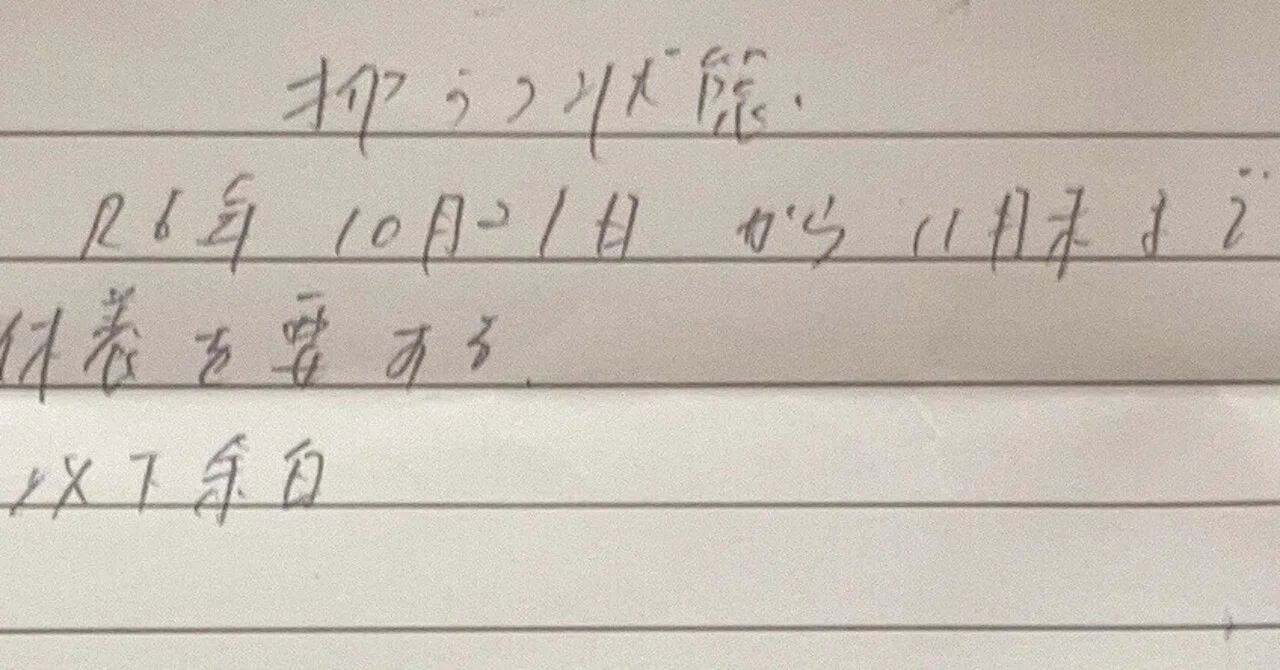 抑うつ状態.
R6年 10月21日 から 11月末まで
休養を要する.
以下余白